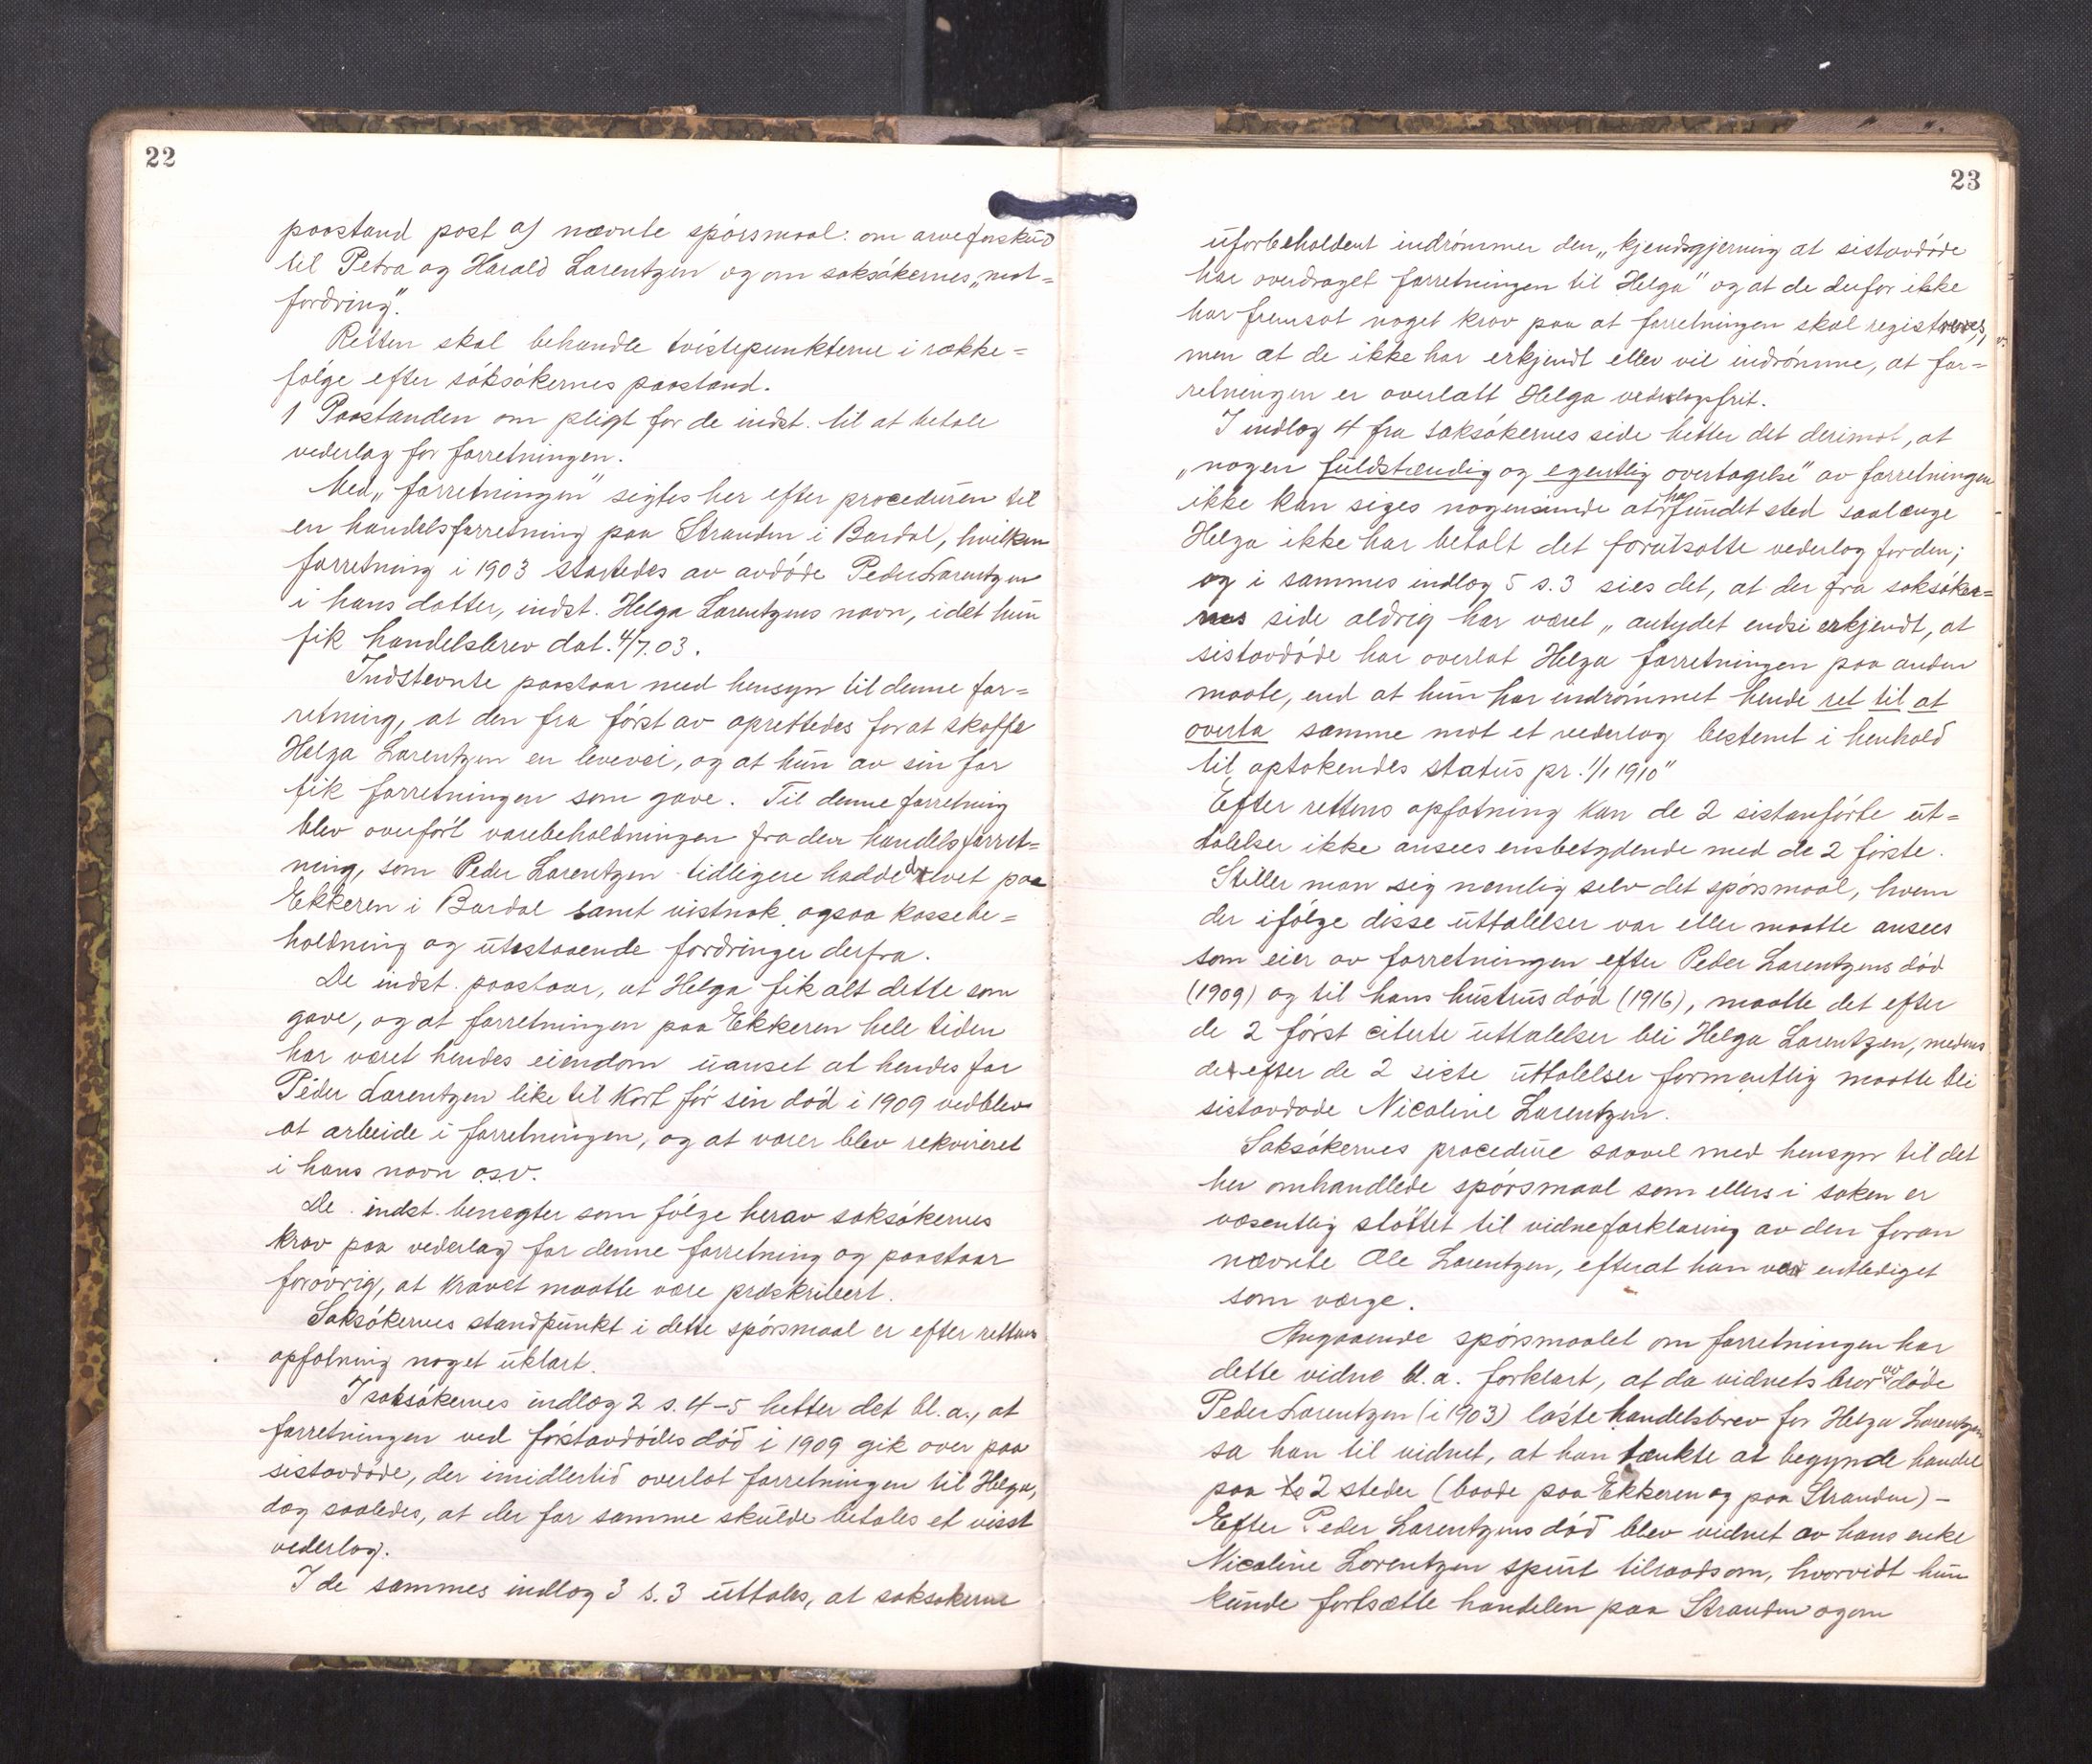 22
paastand post a) nævnte spörsmaal: om arveforskud
til Petra og Harald Larentzen og om saksökernes „mot=
fordring".
Retten skal behandle tvistepunkterne i række=
fölge efter saksökernes paastand.
1 Paastanden om pligt for de indst. til at betale
vederlag for forretningen.
Med „forretningen" sigtes her efter proceduren til
en handelsforretning paa Stranden i Bardal, hvilken
forretning i 1903 startedes av avdöde Peder Larentzen
i hans datter, indst. Helga Larentzens navn, idet hun
fik handelsbrev dat. 4/7.03.
Indstevnte paastaar med hensyn til denne for=
retning, at den fra först av oprettedes for at skaffe
Helga Larentzen en levevei, og at hun av sin far
fik forretningen som gave. Til denne forretning
blev overfört varebeholdningen fra den handelsforret=
ning, som Peder Larentzen tidligere hadde drevet paa
Ekkeren i Bardal samt vistnok ogsaa kassebe=
holdning og utestaaende fordringer derfra.
De indst. paastaar, at Helga fik alt dette som
gave, og at forretningen paa Ekkeren hele tiden
har været hendes eiendom uanset at hendes far
Peder Larentzen like til kort för sin död i 1909 vedblev
at arbeide i forretningen, og at varer blev rekvireret
i hans navn o.s.v.
De indst. benegter som fölge herav saksökernes
krav paa vederlag for denne forretning og paastaar
forövrig, at kravet maatte være præskribert.
Saksökernes standpunkt i dette spörsmaal er efter rettens
opfatning noget uklart.
I saksökernes indlæg 2 s. 4-5 hetter det bl.a., at
forretningen ved förstavdödes död i 1909 gik over paa
sistavdöde, der imidlertid overlot forretningen til Helga,
dog saaledes, at der for samme skulde betales et visst
vederlag.
I de sammes indlæg 3 s. 3 uttales, at saksökerne
23
uforbeholdent indrömmer den „kjendsgjerning at sistavdöde
har overdraget forretningen til Helga" og at de derfor ikke
har fremsat noget krav paa at forretningen skal registreres,
men at de ikke har erkjendt eller vil indrömme, at for=
retningen er overlatt Helga vederlagsfrit.
I indlæg 4 fra saksökernes side hetter det derimot, at
„nogen fuldstændig og egentlig overtagelse" av forretningen
ikke kan siges nogensinde at ha fundet sted saalænge
Helga ikke har betalt det forutsatte vederlag for den;
og i sammes indlæg 5 s. 3 sies det, at der fra saksöker=
nes side aldrig har været „antydet endsi erkjendt, at
sistavdöde har overlat Helga forretningen paa anden
maate, end at hun har indrömmet hende ret til at
overta samme mot et vederlag bestemt i henhold
til optakendes status pr. 1/1 1910"
Efter rettens opfatning kan de 2 sistanförte ut=
talelser ikke ansees ensbetydende med de 2 förste.
Stiller man sig nemlig selv det spörsmaal, hvem
der ifölge disse uttalelser var eller maatte ansees
som eier av forretningen efter Peder Larentzens död
(1909) og til hans hustrus död (1916), maatte det efter
de 2 först citerte uttalelser bli Helga Larentzen, medens
det efter de 2 siste uttalelser formentlig maatte bli
sistavdöde Nicoline Larentzen.
Saksökernes procedure saavel med hensyn til det
her omhandlede spörsmaal som ellers i saken er
væsentlig stöttet til vidneforklaring av den foran
nævnte Ole Larentzen, efterat han var entlediget
som værge.
Angaaende spörsmaalet om forretningen har
dette vidne bl.a. forklart, at da vidnets bror avdöde
Peder Larentzen (i 1903) löste handelsbrev for Helga Larentzen
sa han til vidnet, at han tænkte at begynde handel
paa 2 steder (baade paa Ekkeren og paa Stranden) –
Efter Peder Larentzens död blev vidnet av hans enke
Nicoline Larentzen spurt tilraads om, hvorvidt hun
kunde fortsætte handelen paa Stranden og om